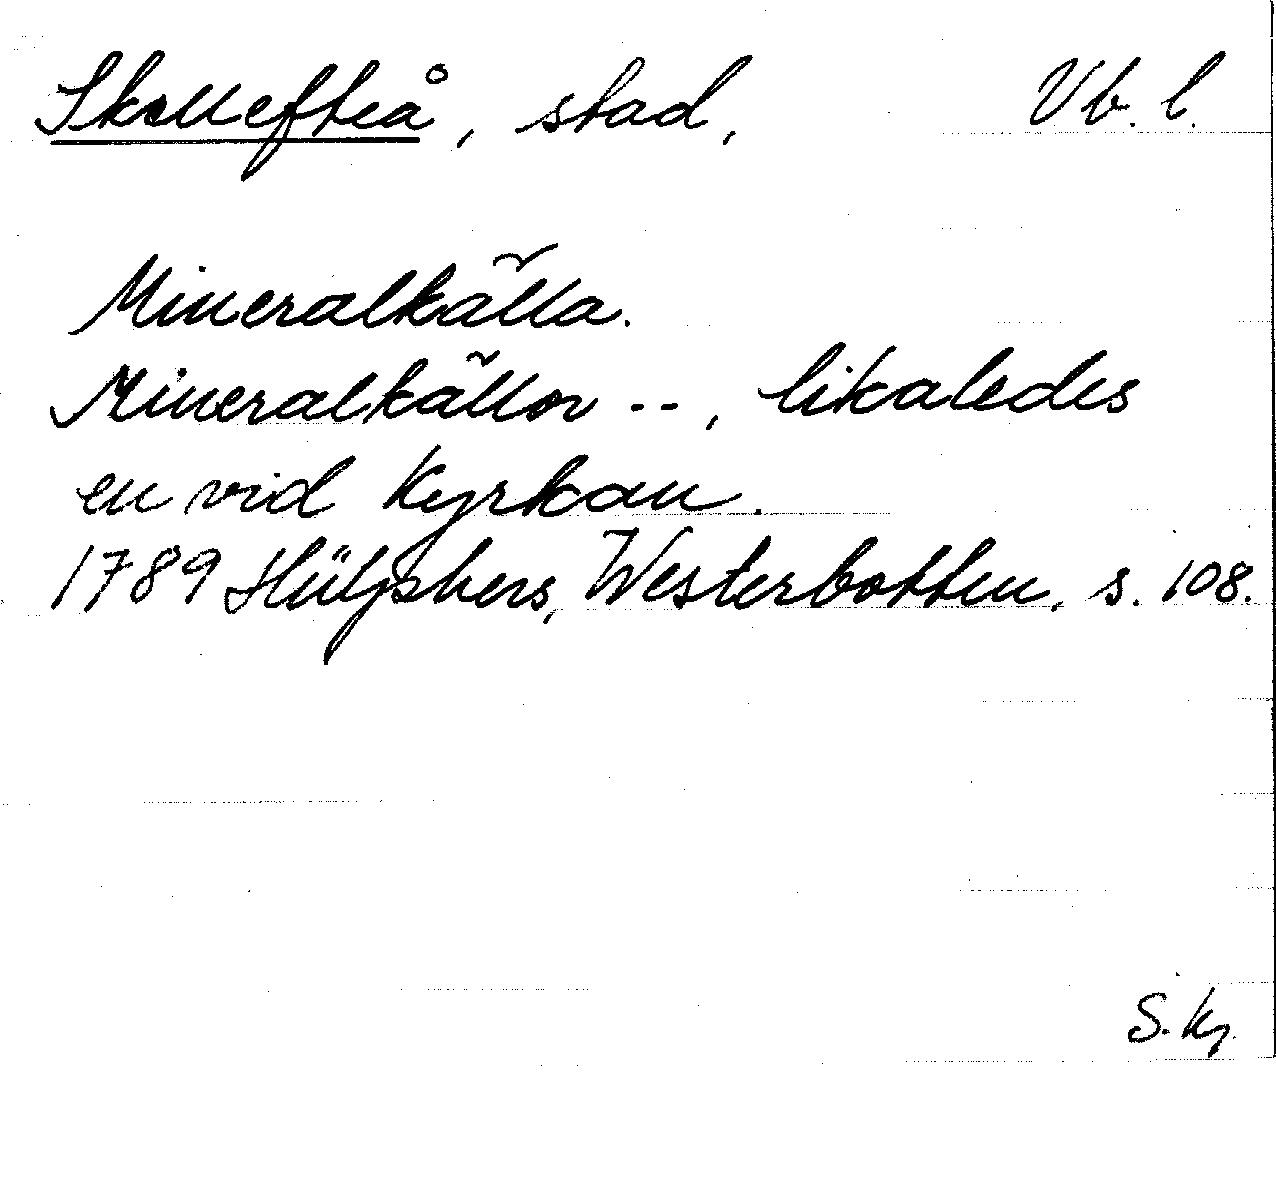 Skellefteå, stad, Vb. l.
Mineralkälla.
Mineralkällor --, likaledes
en vid Kyrkan.
1789 Hülphers, Westerbotten, s. 108.
S. Kj.